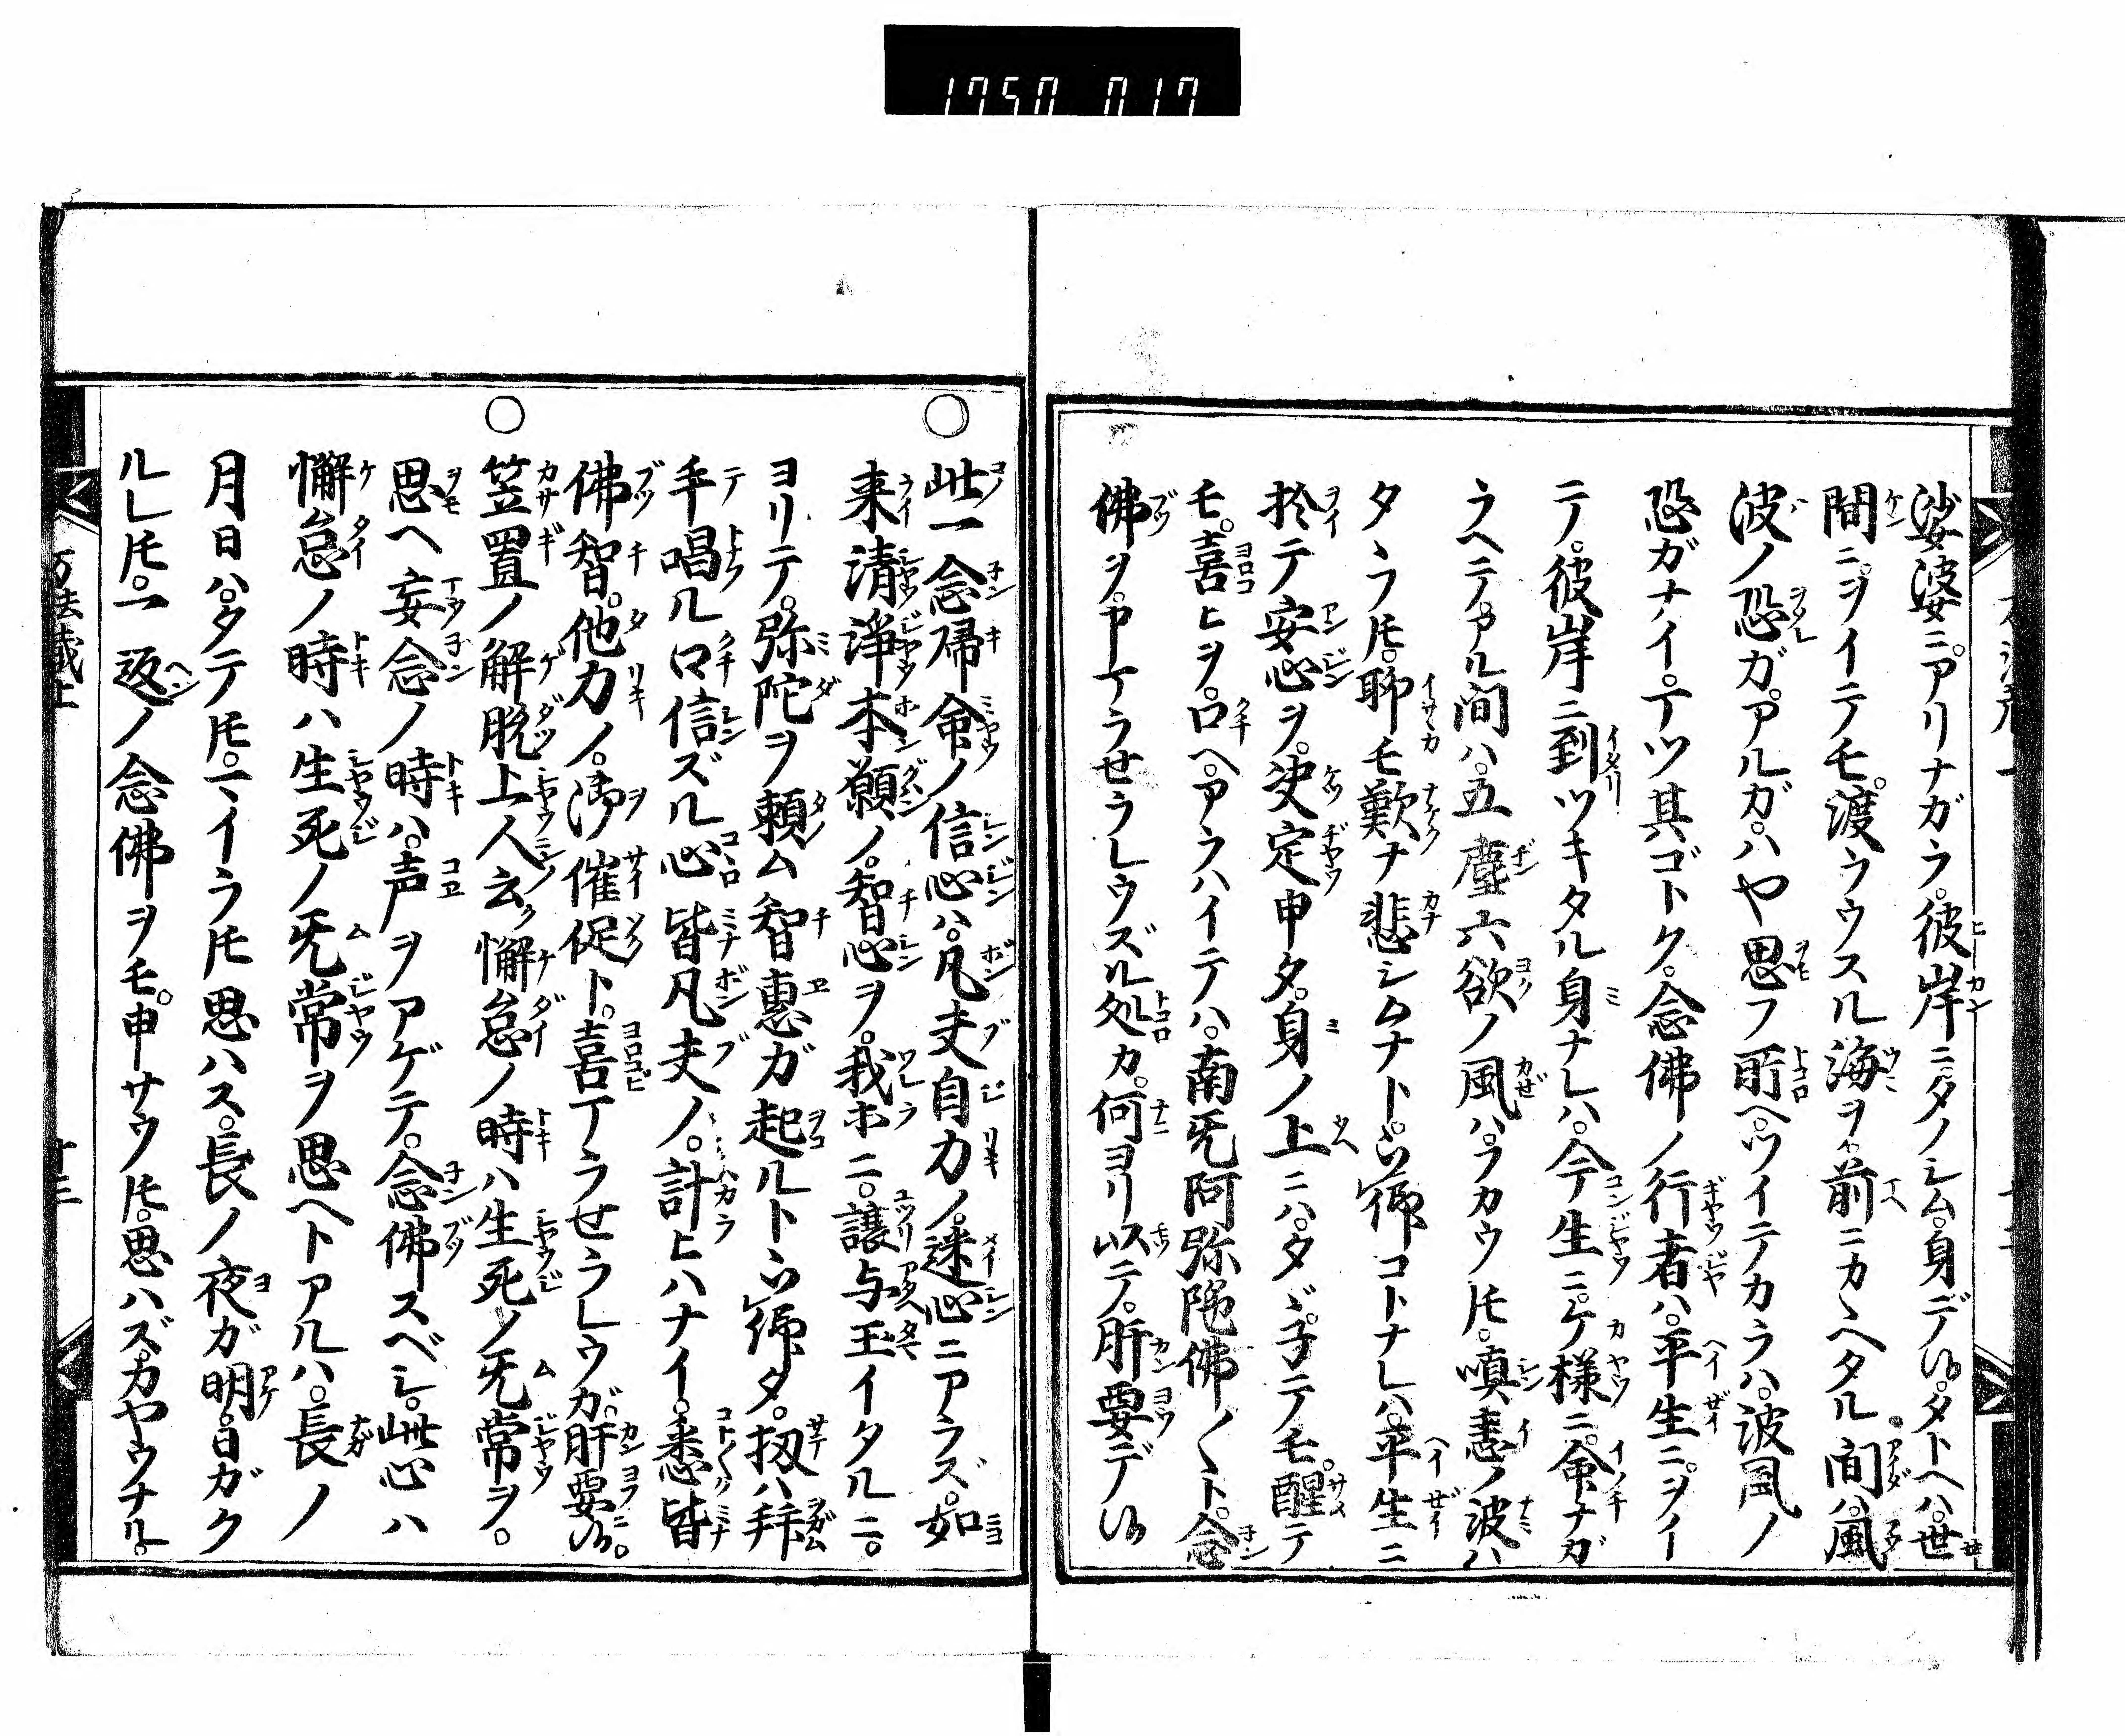 1750 017
娑婆ニ。アリナガラ。彼岸ニタノシム。身デ候。タトヘハ。世
間ニ。ヲイテモ。渡ラウスル海ヲ。前ニカヽヘタル間ハ。風
波ノ恐ガ。アルガ。ハや思フ所ヘ。ツイテカラハ。波風ノ
恐ガナイ。丁ツ其ゴトク。念佛ノ行者ハ。平生ニ。ヲイ
テ。彼岸ニ到ツキタル身ナレハ。今生ニ。ケ様ニ。命ナガ
ラヘテアル間ハ。五塵六欲ノ風ハ。ラカウ𪜈。嗔恚ノ波ハ
タヽフ𪜈。聊モ歎ナ悲シムナト。ツ仰コトナレハ。平生ニ
於テ安心ヲ。決定申タ。身ノ上ニハ。タヾ。子テノモ。醒テ
モ。喜ヒヲ。口ヘ。アラハイテハ。南无阿弥陀佛〳〵ト。念
佛ヲ。申丁ラせラレウズル処カ。何ヨリ以テ。肝要デ候
○此一念帰命ノ信心ハ。凡夫自力ノ。迷心ニアラズ。如
来清浄本願ノ。智心ヲ。我ホニ。譲与玉イタルニ。
ヨリテ。弥陀ヲ頼ム智惠ガ起ルトツ仰タ。扨ハ拜
手唱ル口信ズル心皆凡夫ノ。計ヒハナイ。悉皆
佛智。他力ノ。御催促ト。喜丁ラせラレウガ。肝要ニ候。
○笠置ノ解脱上人云ク懈怠ノ時ハ生死ノ无常ヲ。
思ヘ妄念ノ時ハ。声ヲアゲテ。念佛スベシ。此心ハ
懈怠ノ時ハ生死ノ无常ヲ思ヘトアルハ。長ノ
月日ハ。タテ𪜈。一イラ𪜈思ハス。長ノ夜ガ明。日ガク
ルレ𪜈。一返ノ念佛ヲモ。申サウ𪜈。思ハズ。カヤウナル。
万法蔵上
十三